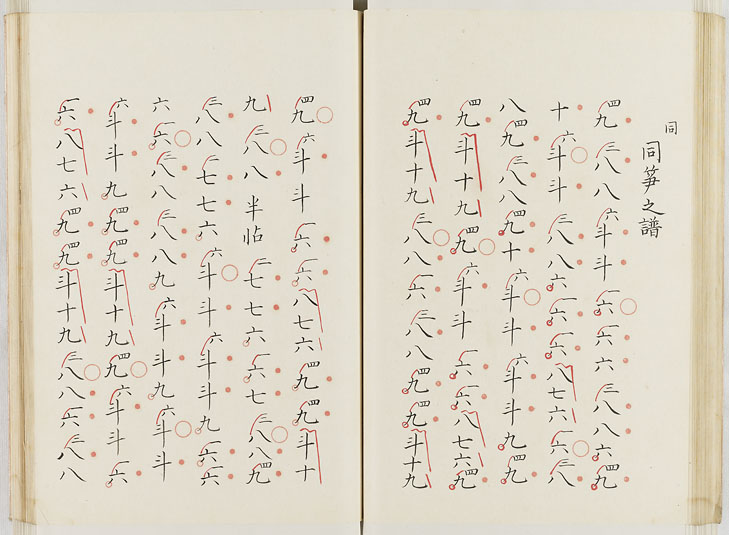 同
同筝之譜
四九三八八六斗斗一六一六六三八八六四九
十六斗斗三八八六一六一六八七六一六三八
八四九三八八四九十六斗斗六斗斗九四九
四九斗十九四九六斗斗一六一六八七六四九
四九斗十九三八八一六三八八四九四九斗十九
四九六斗斗一六一六八七六四九四九斗十
九三八八半帖一七七六一六七三八八四九
三八八一七七六六斗斗六斗斗九一六一六
六一六三八八三八八九六斗斗九六斗斗
六斗斗九四九四九斗十九四九六斗斗一六
一六八七六四九四九斗十九三八八一六三八八